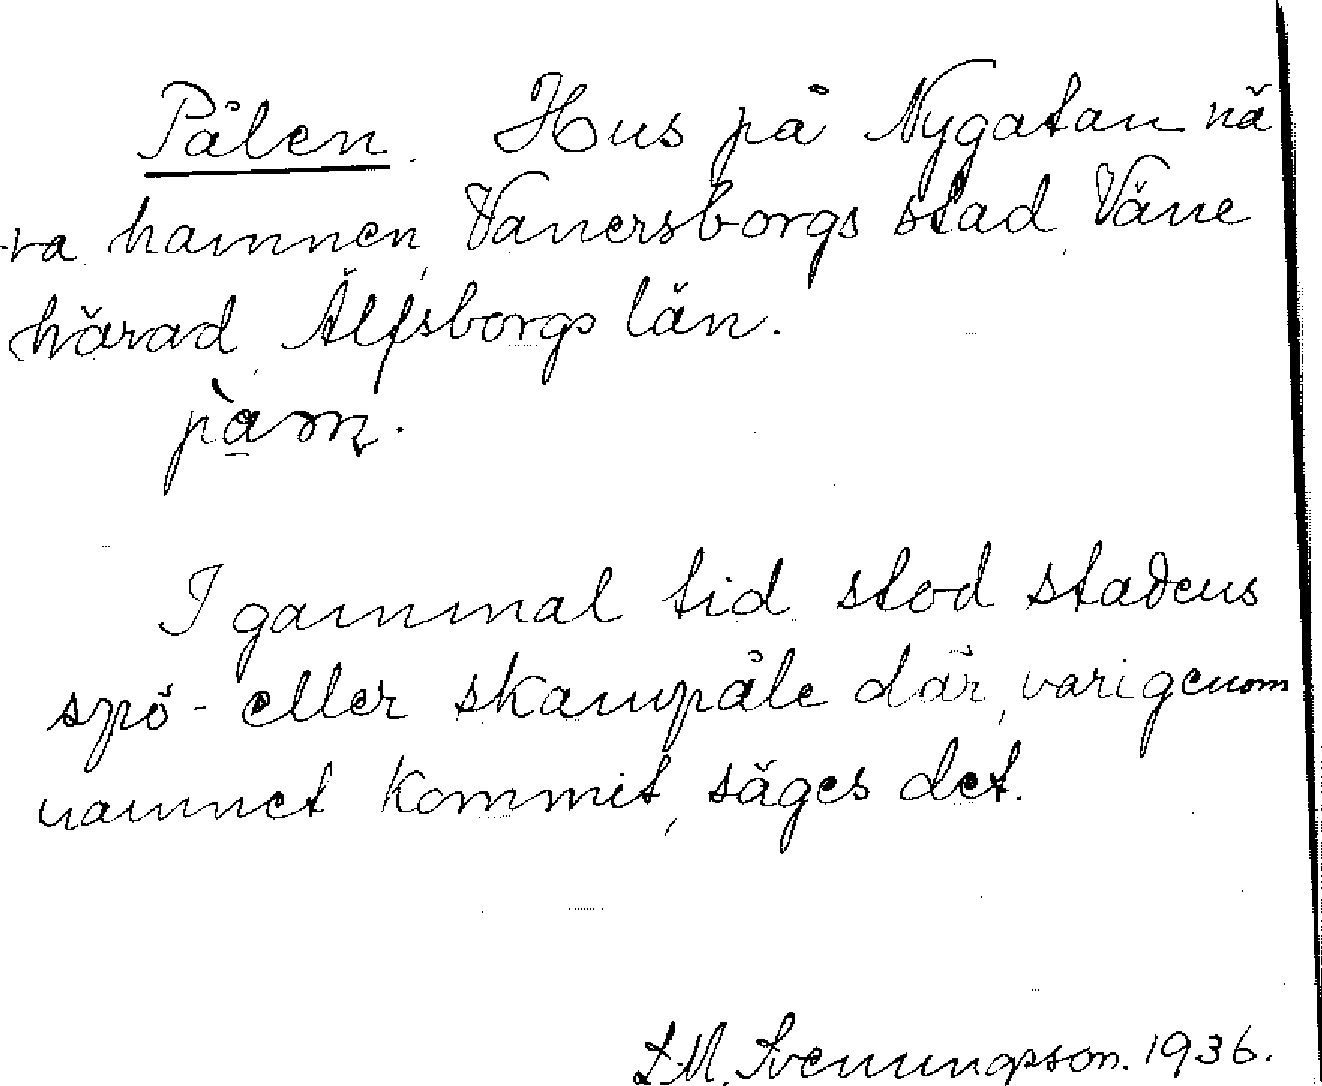 Pålen. Hus på Nygatan nä
ra hamnen, Vanersborgs stad, Väne
härad, Älfsborgs län.
I gammal tid stod stadens
spö- eller skampåle där, varigenom
namnet kommit, säges det.
L.M. Svenungsson. 1936.